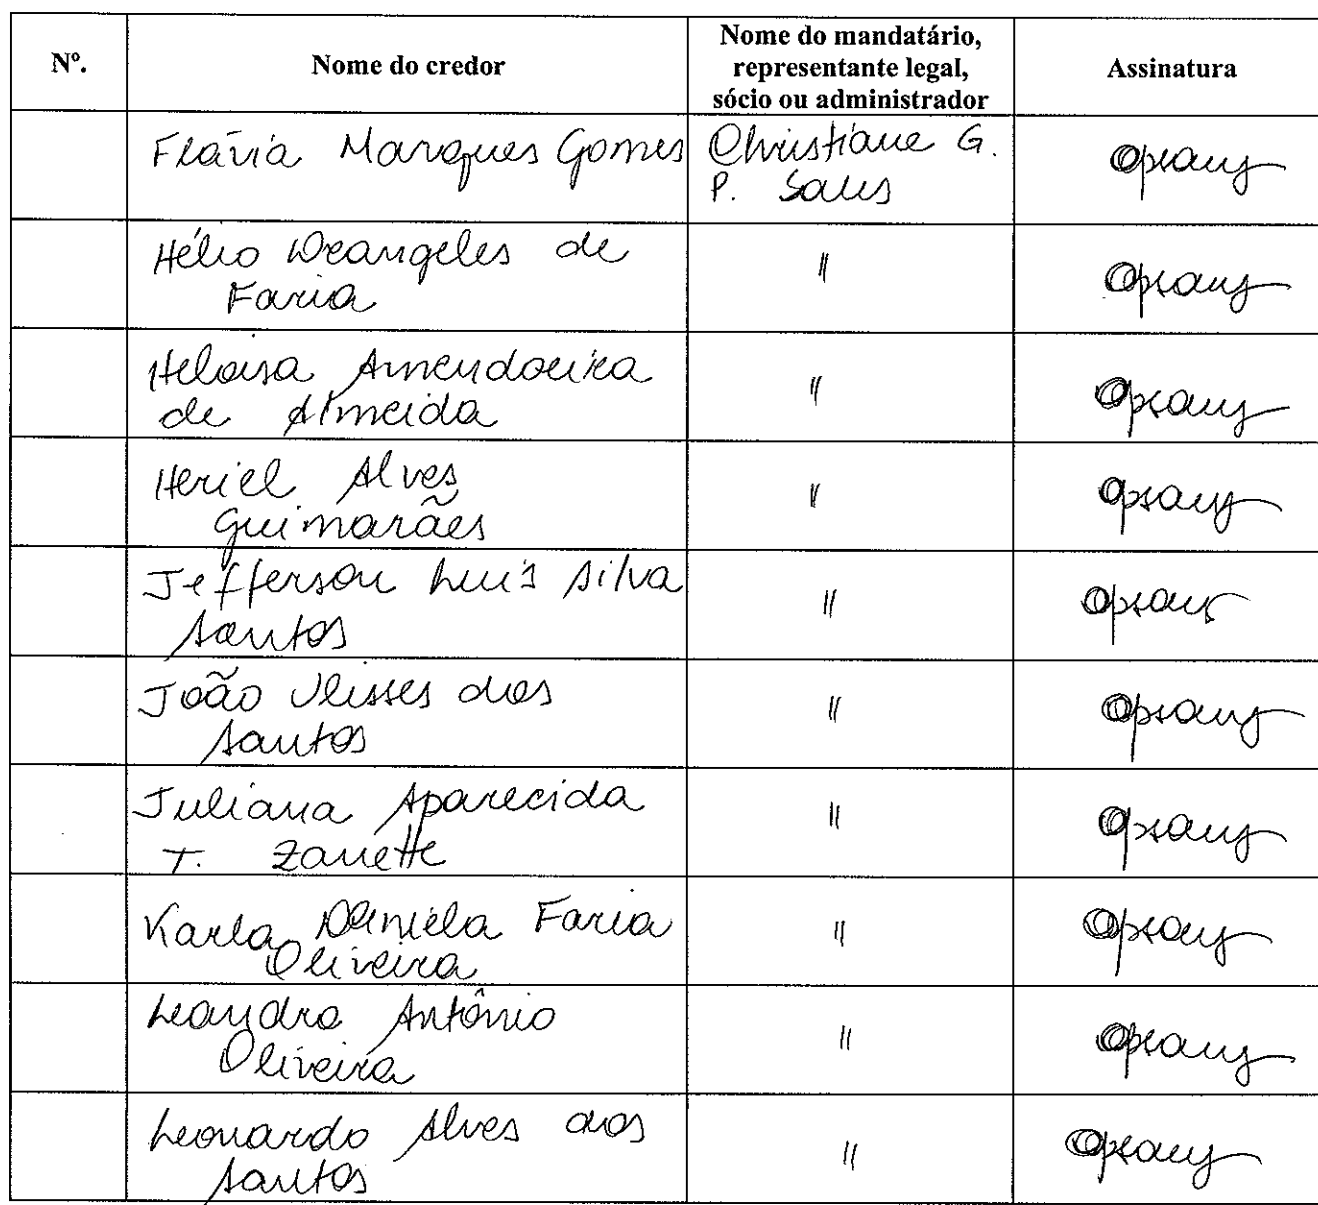 Nº. Nome do credor Nome do mandatário, representante legal, sócio ou administrador Assinatura
Flávia Marques Gomes Christiane G.
P. Sales
Hélio Deangeles de "
Faria
Heloisa Amendoeira "
de Almeida
Heriel Alves "
Guimarães
Jefferson Luís Silva "
Santos
João Ulisses dos "
Santos
Juliana Aparecida "
T. Zanette
Karla Daniela Faria "
Oliveira
Leandro Antônio "
Oliveira
Leonardo Alves dos "
Santos